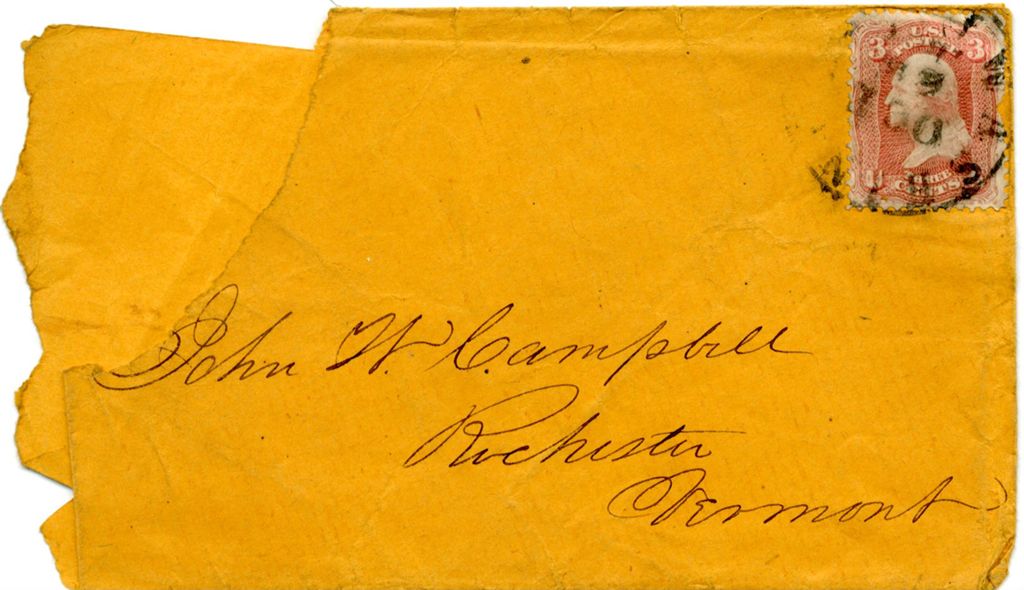 3 U.S. 3
POSTAGE
THREE
CENTS
John W. Campbell
Rochester
Vermont